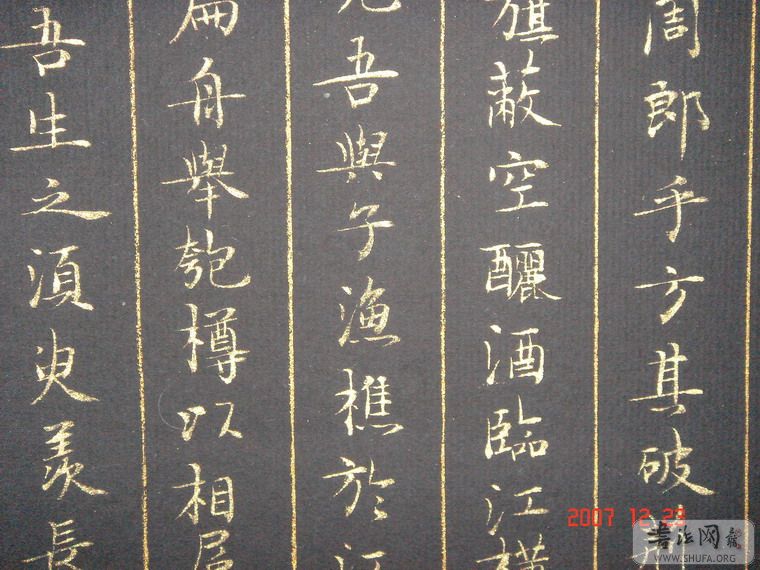 周郎乎方其破荊
旗蔽空釃酒臨江橫
況吾與子漁樵於江
扁舟舉匏樽以相屬
吾生之須臾羨長
2007 12 23
書法网
WWW.SHUFA.ORG